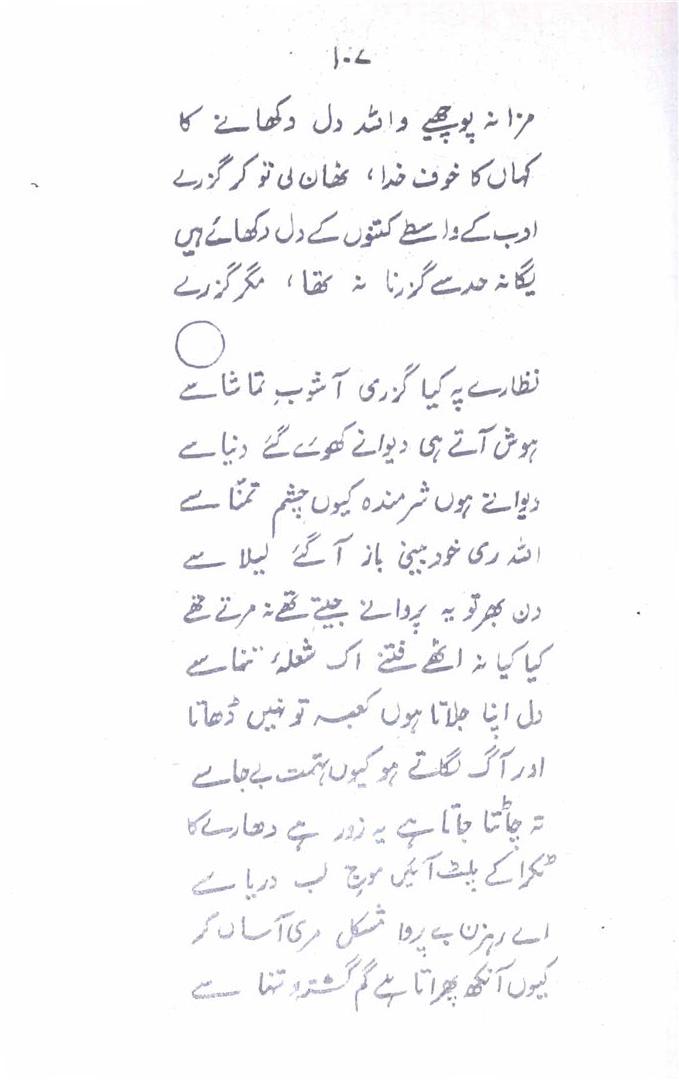 ۱۰۷
مزا نہ پوچھیے واللہ دل دکھانے کا
کہاں کا خوف خدا، ٹھان لی تو کر گزرے
ادب کے واسطے کتنوں کے دل دکھائے ہیں
یگانہ حد سے گزرنا نہ تھا، مگر گزرے
نظارے پہ کیا گزری آشوبِ تماشا سے
ہوش آتے ہی دیوانے کھوئے گئے دنیا سے
دیوانے ہوں شرمندہ کیوں چشمِ تمنّا سے
اللہ ری خود بینی باز آ گئے لیلا سے
دن بھر تو یہ پروانے جیتے تھے نہ مرتے تھے
کیا کیا نہ اٹھے فتنے اک شعلۂ تنہا سے
دل اپنا جلاتا ہوں کعبہ تو نہیں ڈھاتا
اور آگ لگاتے ہو کیوں تہمت بے جا سے
تہ چاٹتا جاتا ہے یہ زور ہے دھارے کا
ٹکرا کے پلٹ آئیں موج لب دریا سے
اے رہزن بے پروا مشکل مری آساں کر
کیوں آنکھ پھراتا ہے گم گشتہ و تنہا سے